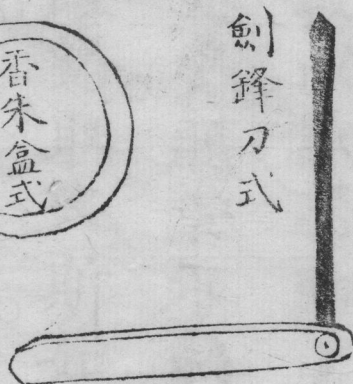 劍鋒刀式
香朱盒式